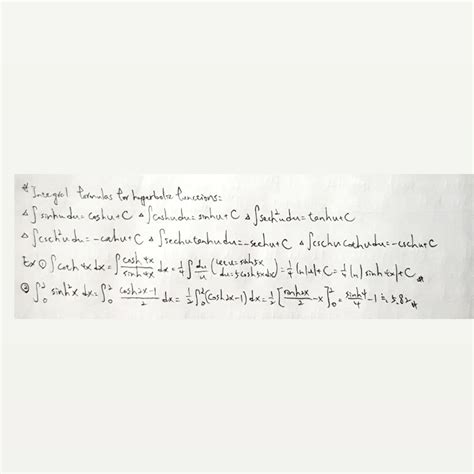 * Integral formulas for hyperbolic functions:
△ ∫ sinhu du = coshu + C △ ∫ coshu du = sinhu + C △ ∫ sech²u du = tanhu + C
△ ∫ csch²u du = -cothu + C △ ∫ sechu tanhu du = -sechu + C △ ∫ cschu cothu du = -cschu + C
Ex ① ∫ coth 4x dx = ∫ cosh 4x / sinh 4x dx = 1/4 ∫ du/u (let u = sinh 4x du = 4cosh 4x dx) = 1/4 ln|u| + C = 1/4 ln|sinh 4x| + C
② ∫₀² sinh²x dx = ∫₀² (cosh2x-1)/2 dx = 1/2 ∫₀² (cosh2x-1) dx = 1/2 [sinh2x/2 - x]₀² = sinh4/4 - 1 ≒ 5.82